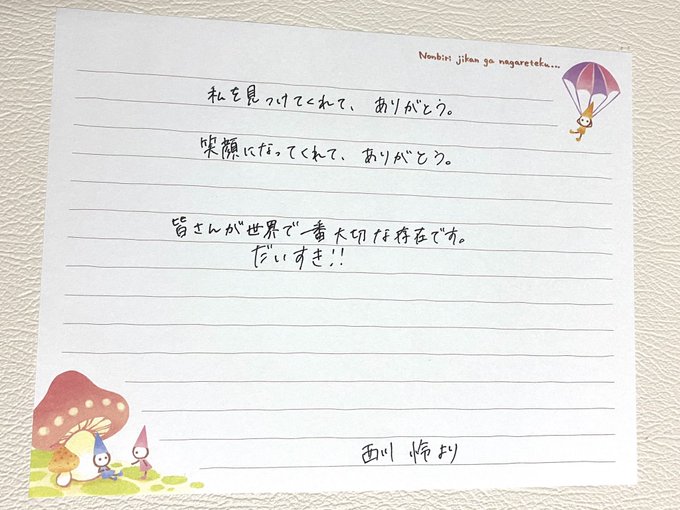 Nonbiri jikan ga nagareteku...
私を見つけてくれて、ありがとう。
笑顔になってくれて、ありがとう。
皆さんが世界で一番大切な存在です。
だいすき!!
西川 怜より